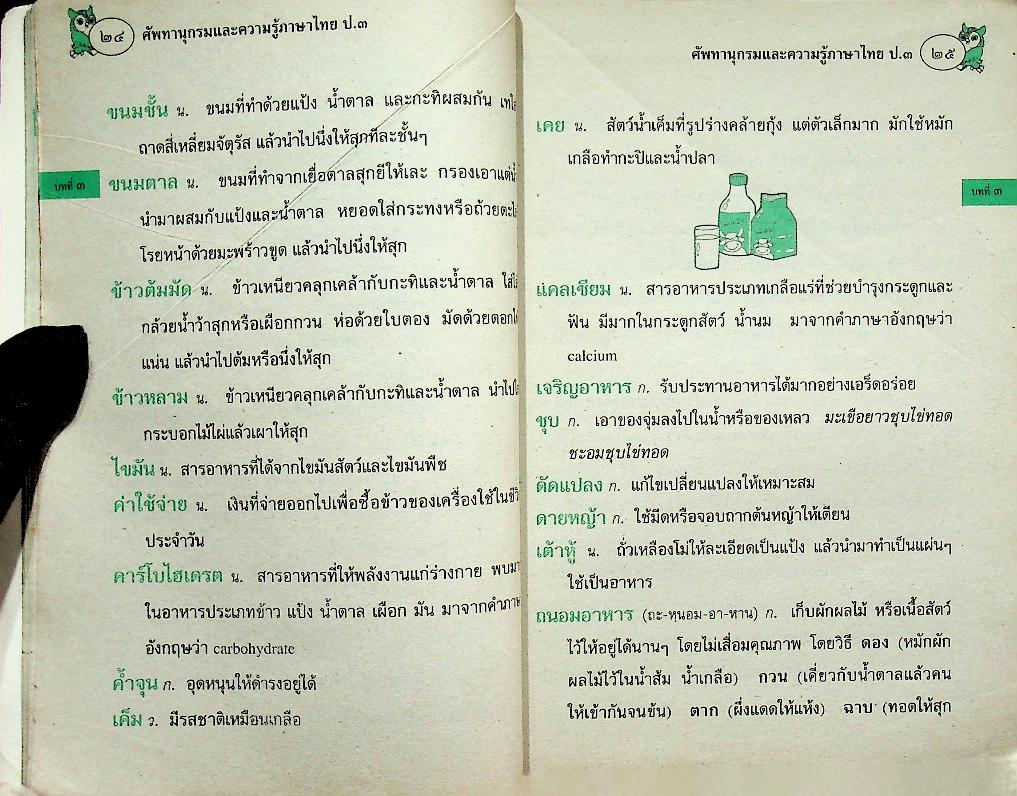 ๒๔ ศัพทานุกรมและความรู้ภาษาไทย ป.๓
ขนมชั้น น. ขนมที่ทำด้วยแป้ง น้ำตาล และกะทิผสมกัน
ถาดสี่เหลี่ยมจัตุรัส แล้วนำไปนึ่งให้สุกทีละชั้นๆ
บทที่ ๓
ขนมตาล น. ขนมที่ทำจากเยื่อตาลสุกยีให้เละ กรองเอาแต่
นำมาผสมกับแป้งและน้ำตาล หยอดใส่กระทงหรือถ้วย
โรยหน้าด้วยมะพร้าวขูด แล้วนำไปนึ่งให้สุก
ข้าวต้มมัด น. ข้าวเหนียวคลุกเคล้ากับกะทิและน้ำตาล ใส่
กล้วยน้ำว้าสุกหรือเผือกกวน ห่อด้วยใบตอง มัดด้วยตอก
แน่น แล้วนำไปต้มหรือนึ่งให้สุก
ข้าวหลาม น. ข้าวเหนียวคลุกเคล้ากับกะทิและน้ำตาล นำไป
กระบอกไม้ไผ่แล้วเผาให้สุก
ไขมัน น. สารอาหารที่ได้จากไขมันสัตว์และไขมันพืช
ค่าใช้จ่าย น. เงินที่จ่ายออกไปเพื่อซื้อข้าวของเครื่องใช้ใน
ประจำวัน
คาร์โบไฮเดรต น. สารอาหารที่ให้พลังงานแก่ร่างกาย พบ
ในอาหารประเภทข้าว แป้ง น้ำตาล เผือก มัน มาจากคำ
อังกฤษว่า carbohydrate
ค้ำจุน ก. อุดหนุนให้ดำรงอยู่ได้
เค็ม ว. มีรสชาติเหมือนเกลือ
ศัพทานุกรมและความรู้ภาษาไทย ป.๓ ๒๕
เคย น. สัตว์น้ำเค็มที่รูปร่างคล้ายกุ้ง แต่ตัวเล็กมาก มักใช้หมัก
เกลือทำกะปิและน้ำปลา
บทที่ ๓
แคลเซียม น. สารอาหารประเภทเกลือแร่ที่ช่วยบำรุงกระดูกและ
ฟัน มีมากในกระดูกสัตว์ น้ำนม มาจากคำภาษาอังกฤษว่า
calcium
เจริญอาหาร ก. รับประทานอาหารได้มากอย่างเอร็ดอร่อย
ชุบ ก. เอาของจุ่มลงไปในน้ำหรือของเหลว มะเขือยาวชุบไข่ทอด
ชะอมชุบไข่ทอด
ดัดแปลง ก. แก้ไขเปลี่ยนแปลงให้เหมาะสม
ดายหญ้า ก. ใช้มีดหรือจอบถากต้นหญ้าให้เตียน
เต้าหู้ น. ถั่วเหลืองโม่ให้ละเอียดเป็นแป้ง แล้วนำมาทำเป็นแผ่นๆ
ใช้เป็นอาหาร
ถนอมอาหาร (ถะ-หฺนอม-อา-หาน) ก. เก็บผักผลไม้ หรือเนื้อสัตว์
ไว้ให้อยู่ได้นานๆ โดยไม่เสื่อมคุณภาพ โดยวิธี ดอง (หมักผัก
ผลไม้ไว้ในน้ำส้ม น้ำเกลือ) กวน (เคี่ยวกับน้ำตาลแล้วคน
ให้เข้ากันจนข้น) ตาก (ผึ่งแดดให้แห้ง) ฉาบ (ทอดให้สุก